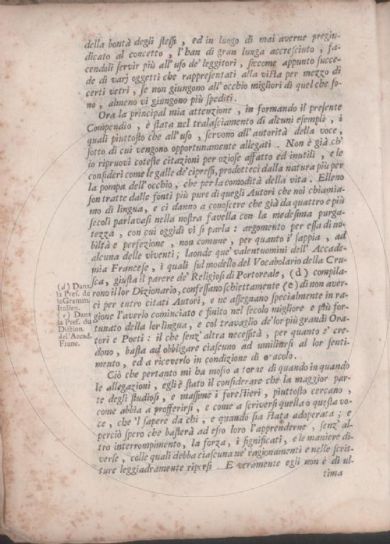 della bontà degli stessi, ed in luogo di mai averne pregiu-
dicato al concetto, l'han di gran lunga accresciuto, fa-
cendoli servir più all'uso de' leggitori, siccome appunto succe-
de di varj oggetti che rappresentati alla vista per mezzo di
certi vetri, se non giungono all'occhio migliori di quel che so-
no, almeno vi giungono più spediti.
Ora la principal mia attenzione, in formando il presente
Compendio, è stata nel tralasciamento di alcuni esempli, i
quali piuttosto che all'uso, servono all'autorità della voce,
sotto di cui vengono opportunamente allegati. Non è già ch'
io ripruovi coteste citazioni per oziose affatto ed inutili, e le
consideri come le galle de' cipressi, prodotteci dalla natura più per
la pompa dell'occhio, che per la comodità della vita. Elleno
son tratte dalle fonti più pure di quegli Autori che noi chiamia-
mo di lingua, e ci danno a conoscere che già da quattro e più
secoli parlavasi nella nostra favella con la medesima purga-
tezza, con cui oggidì vi si parla: argomento per essa di no-
biltà e perfezione, non comune, per quanto i' sappia, ad
alcuna delle viventi; laonde que' valentuomini dell' Accade-
mia Francese, i quali sul modello del Vocabolario della Cru-
sca, giusta il parere de' Religiosi di Portoreale, (d) compila-
rono il lor Dizionario, confessano schiettamente (e) di non aver-
ci per entro citati Autori, e ne assegnano specialmente in ra-
gione l'averlo cominciato e finito nel secolo migliore e più for-
tunato della lor lingua, e col travaglio de' lor più grandi Ora-
tori e Poeti: il che senz' altra necessità, per quanto e' cre-
dono, basta ad obbligare ciascuno ad umiliarsi al lor senti-
mento, ed a riceverlo in condizione di oracolo.
(d) Dans
la Pref. de
la Gramm.
Italien.
(e) Dans
la Pref. du
Diction.
de l'Acad.
Franc.
Ciò che pertanto mi ha mosso a torne di quando in quando
le allegazioni, egli è stato il considerare che la maggior par-
te degli studiosi, e massime i forestieri, piuttosto cercano
come abbia a profferirsi, e come a scriversi quella o questa vo-
ce, che 'l sapere da chi, e quando sia stata adoperata; e
perciò spero che basterà ad esso loro l'apprenderne, senz' al-
tro interrompimento, la forza, i significati, e le maniere di-
verse, colle quali debba ciascuna ne' ragionamenti e nelle scrit-
ture leggiadramente riporsi. E veramente egli non è di ul-
tima